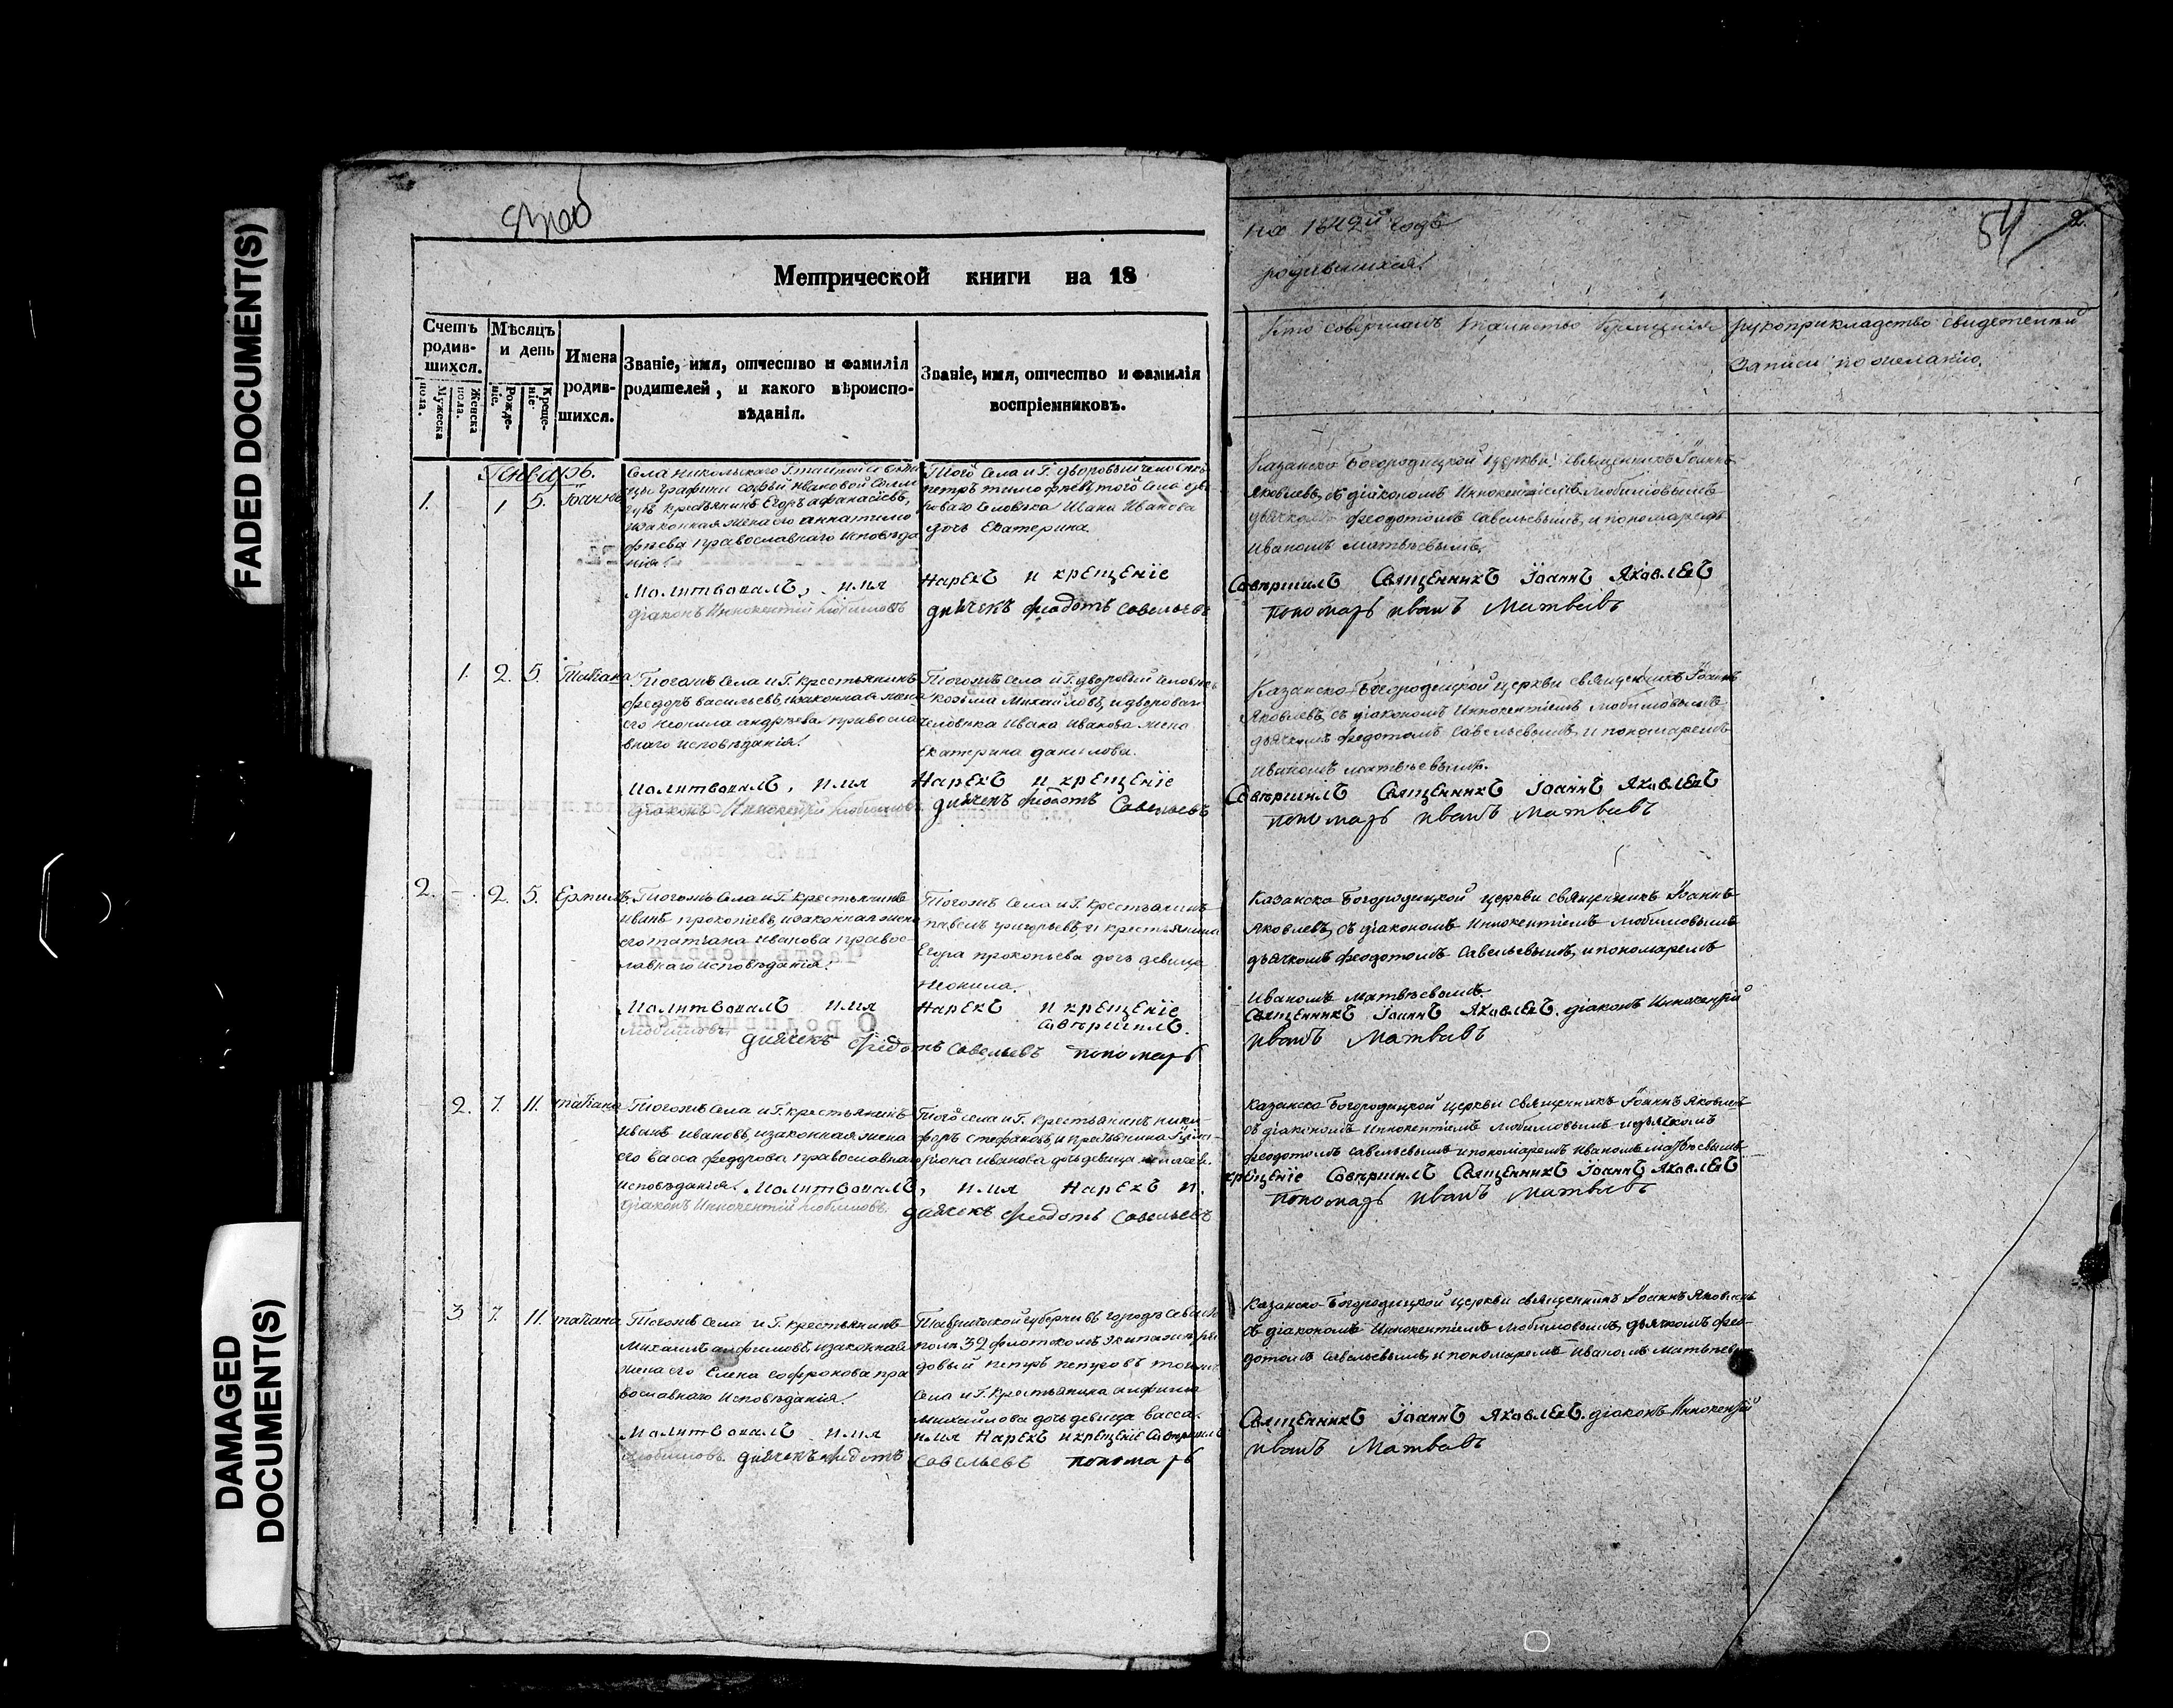 FADED DOCUMENT(S)
DAMAGED DOCUMENT(S)
Метрической книги на 18
на 1842й годъ
54
2.
родившихся.
Счетъ родив- шихся.
Мѣсяцъ и день
Имена родив- шихся.
Званіе, имя, отчество и фамилія родителей, и какого вѣроиспо- вѣданія.
Званіе, имя, отчество и фамилія воспріемниковъ.
Кто совершалъ таинство крещенія
рукоприкладство свидетелей записи по желанію.
Мужеска пола.
Женска пола.
Рожде- ніе.
Креще- ніе.
Генварь.
1.
1
5.
Іоаннъ
Села Никольскаго Г.
цы Графини Софьи Ивановой Солло
губъ крестьянинъ Егоръ Афанасіевъ,
изаконная жена его Анна тимо
фѣева православнаго Исповѣда
нія.
Того Села и Г. дворовый
петръ тимофѣевъ, того Села
человѣка Ивана Иванова
дочь Екатерина
Казанско Богородицкой церкви священникъ Іоаннъ
Яковлевъ, съ діакономъ Иннокентіемъ Любимовымъ
дьячкомъ феодотомъ Савельевымъ, и пономаремъ
Иваномъ Матвѣевымъ.
Молитвовалъ, имя Нарекъ и крещеніе Совершилъ Священникъ Іоаннъ Яковлевъ
діаконъ Иннокентій Любимовъ дьячекъ феодотъ Савельевъ пономарь иванъ Матвѣевъ
1.
2.
5.
Татіана
Тогожъ Села и Г. крестьянинъ
федоръ васильевъ, изаконная жена
его неонила андрѣева правосла
внаго исповѣданія.
Тогожъ Села и Г. дворовый человѣкъ
козьма Михайловъ, и двороваго
человѣка Ивана Иванова жена
Екатерина данилова.
Казанско-Богородицкой церкви священникъ Іоаннъ
Яковлевъ, съ діакономъ Иннокентіемъ Любимовымъ
дьячкомъ феодотомъ Савельевымъ, и пономаремъ
Иваномъ Матвѣевымъ.
Молитвовалъ, имя Нарекъ и крещеніе Совершилъ Священникъ Іоаннъ Яковлевъ
діаконъ Иннокентій Любимовъ дьячекъ феодотъ Савельевъ пономарь иванъ Матвѣевъ
2.
2.
5.
Ермилъ
Тогожъ Села и Г. крестьянинъ
иванъ прокопіевъ, изаконная жена
его татіана иванова правос-
лавнаго исповѣданія.
Тогожъ Села и Г. Крестьянинъ
павелъ григорьевъ и крестьянина
Егора прокопьева дочь девица
Неонила.
Казанско Богородицкой церкви священникъ Іоаннъ
Яковлевъ, съ діакономъ Иннокентіемъ Любимовымъ
дьячкомъ феодотомъ Савельевымъ, и пономаремъ
Иваномъ Матвѣевымъ.
Молитвовалъ имя Нарекъ и крещеніе Совершилъ. Священникъ Іоаннъ Яковлевъ. діаконъ Иннокентій
Любимовъ. дьячекъ феодотъ Савельевъ пономарь иванъ Матвѣевъ
2.
7.
11.
татіана
Тогожъ Села и Г. крестьянинъ
Иванъ Ивановъ, изаконная жена
его Васса федорова православнаго
исповѣданія.
Того села и Г. крестьянинъ ники-
форъ Стефановъ, и крестьянина
иванова дочь девица
Казанско Богородицкой церкви священникъ Іоаннъ Яковлевъ
съ діакономъ Иннокентіемъ Любимовымъ и дьячкомъ
феодотомъ Савельевымъ и пономаремъ Иваномъ Матвѣевымъ
Молитвовалъ, имя Нарекъ и крещеніе Совершилъ Священникъ Іоаннъ Яковлевъ
діаконъ Иннокентій Любимовъ. дьячекъ феодотъ Савельевъ пономарь иванъ Матвѣевъ
3.
7.
11.
татіана
Тогожъ Села и Г. крестьянинъ
Михаилъ анфимовъ, изаконная
жена его Елена софронова пра
вославнаго Исповѣданія.
Таврической губерніи въ городѣ Севасто
поль 32 флотскомъ экипажѣ ря
довый петръ петровъ тогожъ
Села и Г. Крестьянина анфима
михайлова дочь девица васса.
Казанско-Богородицкой церкви священникъ Іоаннъ Яковлевъ
съ діакономъ Иннокентіемъ Любимовымъ, дьячкомъ фео-
дотомъ Савельевымъ, и пономаремъ Иваномъ Матвѣев
Молитвовалъ имя Нарекъ и крещеніе Совершилъ Священникъ Іоаннъ Яковлевъ. діаконъ Иннокентій
Любимовъ. дьячекъ феодотъ Савельевъ пономарь иванъ Матвѣевъ